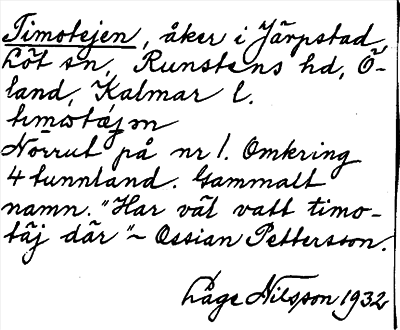 Timotejen, åker i Järpstad,
Löt sn, Runstens hd, Ö-
land, Kalmar l.
timotäjən
Norrut på nr 1. Omkring
4 tunnland. Gammalt
namn. "Har väl vatt timo-
täj där" ~ Ossian Pettersson.
Låge Nilsson 1932